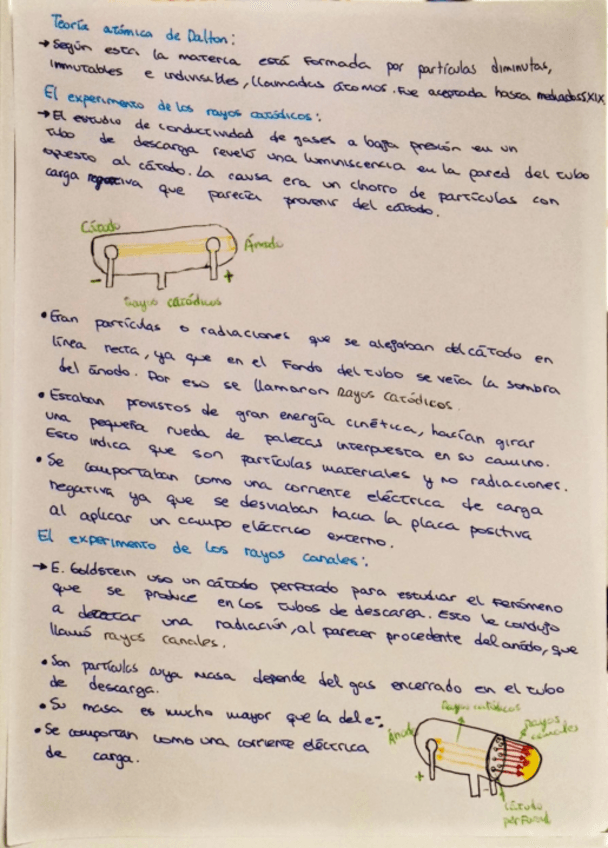 Teoría atómica de Dalton:
→ Según esta la materia está formada por partículas diminutas,
inmutables e indivisibles, llamadas átomos. Fue aceptada hasta mediados SXIX
El experimento de los rayos catódicos:
→ El estudio de conductividad de gases a baja presión en un
tubo de descarga reveló una luminiscencia en la pared del tubo
opuesto al cátodo. La causa era un chorro de partículas con
carga negativa que parecía provenir del cátodo.
Cátodo
Ánodo
- +
Rayos catódicos
• Eran partículas o radiaciones que se alejaban del cátodo en
línea recta, ya que en el fondo del tubo se veía la sombra
del ánodo. Por eso se llamaron Rayos catódicos.
• Estaban provistos de gran energía cinética, hacían girar
una pequeña rueda de paletas interpuesta en su camino.
Esto indica que son partículas materiales y no radiaciones.
• Se comportaban como una corriente eléctrica de carga
negativa ya que se desviaban hacia la placa positiva
al aplicar un campo eléctrico externo.
El experimento de los rayos canales:
→ E. Goldstein uso un cátodo perforado para estudiar el fenómeno
que se produce en los tubos de descarga. Esto le condujo
a detectar una radiación, al parecer procedente del anódo, que
llamó rayos canales.
• Son partículas cuya masa depende del gas encerrado en el tubo
de descarga.
• Su masa es mucho mayor que la del e-.
• Se comportan como una corriente eléctrica
de carga.
Rayos catódicos
Ánodo
rayos
canales
+ -
cátodo
perforad